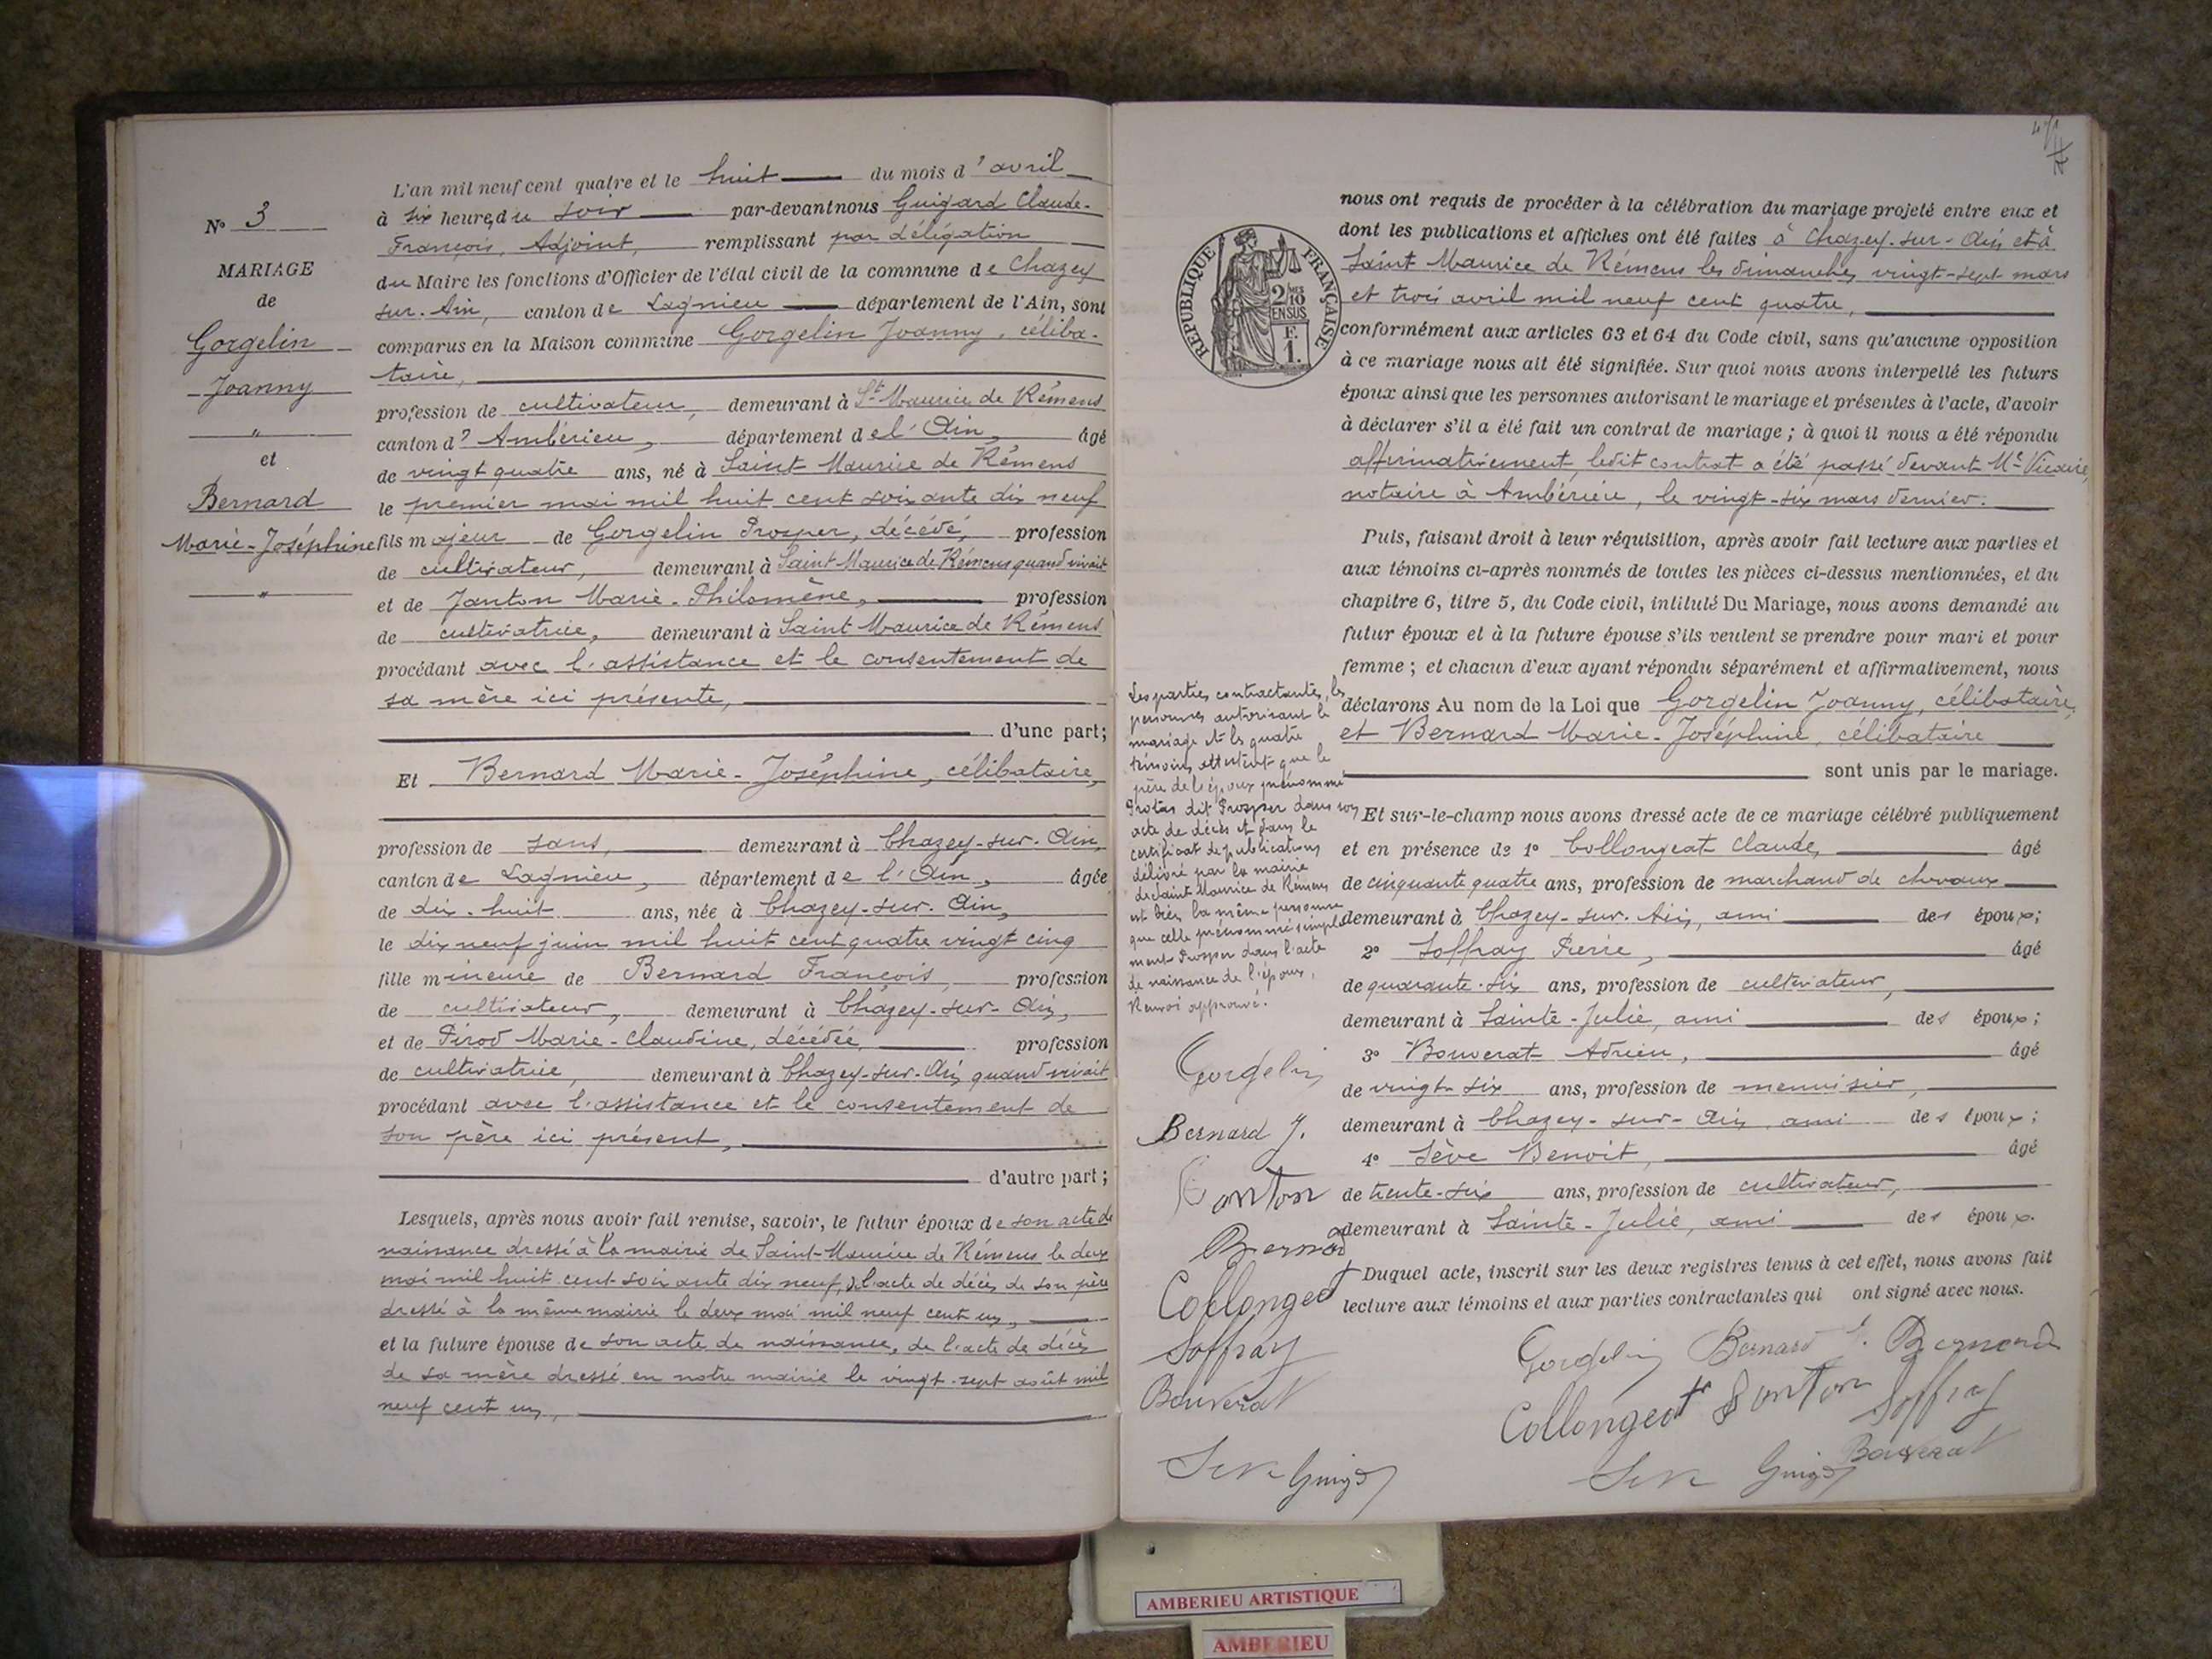 L'an mil neuf cent quatre et le huit du mois d'avril
à six heures du soir par-devant nous Guigard Claude-
François, Adjoint, remplissant par délégation
du Maire les fonctions d'Officier de l'état civil de la commune de Chazey
sur-Ain, canton de Lagnieu département de l'Ain, sont
comparus en la Maison commune Gorgelin Joanny, céliba-
taire,
profession de cultivateur, demeurant à St Maurice de Rémens
canton d' Ambérieu, département de l'Ain, âgé
de vingt quatre ans, né à Saint Maurice de Rémens
le premier mai mil huit cent soixante dix neuf
fils majeur de Gorgelin Prosper, décédé, profession
de cultivateur, demeurant à Saint-Maurice de Rémens quand vivait
et de Janton Marie-Philomène, profession
de cultivatrice, demeurant à Saint Maurice de Rémens
procédant avec l'assistance et le consentement de
sa mère ici présente,
d'une part;
Et Bernard Marie-Joséphine, célibataire,
profession de sans, demeurant à Chazey-sur-Ain,
canton de Lagnieu, département de l'Ain, âgée
de dix-huit ans, née à Chazey-sur-Ain,
le dix neuf juin mil huit cent quatre vingt cinq
fille mineure de Bernard François, profession
de cultivateur, demeurant à Chazey-sur-Ain,
et de Pirod Marie-Claudine, décédée, profession
de cultivatrice, demeurant à Chazey-sur-Ain quand vivait
procédant avec l'assistance et le consentement de
son père ici présent,
d'autre part;
Lesquels, après nous avoir fait remise, savoir, le futur époux de son acte de
naissance dressé à la mairie de Saint-Maurice de Rémens le deux
mai mil huit cent soixante dix neuf, de l'acte de décès de son père
dressé à la même mairie le deux mai mil neuf cent un,
et la future épouse de son acte de naissance, de l'acte de décès
de sa mère dressé en notre mairie le vingt-sept août mil
neuf cent un,
No 3
MARIAGE
de
Gorgelin
Joanny
"
et
Bernard
Marie-Joséphine
"
nous ont requis de procéder à la célébration du mariage projeté entre eux et
dont les publications et affiches ont été faites à Chazey-sur-Ain et à
Saint Maurice de Rémens les dimanches vingt-sept mars
et trois avril mil neuf cent quatre,
conformément aux articles 63 et 64 du Code civil, sans qu'aucune opposition
à ce mariage nous ait été signifiée. Sur quoi nous avons interpellé les futurs
époux ainsi que les personnes autorisant le mariage et présentes à l'acte, d'avoir
à déclarer s'il a été fait un contrat de mariage; à quoi il nous a été répondu
affirmativement, ledit contrat a été passé devant Me Vicaire,
notaire à Ambérieu, le vingt-six mars dernier.
Puis, faisant droit à leur réquisition, après avoir fait lecture aux parties et
aux témoins ci-après nommés de toutes les pièces ci-dessus mentionnées, et du
chapitre 6, titre 5, du Code civil, intitulé Du Mariage, nous avons demandé au
futur époux et à la future épouse s'ils veulent se prendre pour mari et pour
femme; et chacun d'eux ayant répondu séparément et affirmativement, nous
déclarons Au nom de la Loi que Gorgelin Joanny, célibataire,
et Bernard Marie-Joséphine, célibataire
sont unis par le mariage.
Et sur-le-champ nous avons dressé acte de ce mariage célébré publiquement
et en présence de 1º Collongeat Claude, âgé
de cinquante quatre ans, profession de marchand de chevaux
demeurant à Chazey-sur-Ain, ami des époux;
2º Soffray Pierre, âgé
de quarante-six ans, profession de cultivateur,
demeurant à Sainte-Julie, ami des époux;
3º Bouverat Adrien, âgé
de vingt-six ans, profession de menuisier,
demeurant à Chazey-sur-Ain, ami des époux;
4º Sève Benoit, âgé
de trente-six ans, profession de cultivateur,
demeurant à Sainte-Julie, ami des époux.
Duquel acte, inscrit sur les deux registres tenus à cet effet, nous avons fait
lecture aux témoins et aux parties contractantes qui ont signé avec nous.
Gorgelin Bernard J. Bernard
Collongeat Janton Soffray
Bouverat
Seve Guigard
RÉPUBLIQUE FRANÇAISE
2/10
EN SUS
F.
1.
Les parties contractantes, les
personnes autorisant le
mariage et les quatre
témoins attestent que le
père de l'époux prénommé
Protais dit Prosper dans son
acte de décès et dans le
certificat de publications
délivré par la mairie
de Saint Maurice de Rémens
est bien la même personne
que celle prénommé simple-
ment Prosper dans l'acte
de naissance de l'époux.
Renvoi approuvé.
Gorgelin
Bernard J.
Janton
Bernard
Collongeat
Soffray
Bouverat
Seve Guigard
AMBERIEU ARTISTIQUE
AMBERIEU